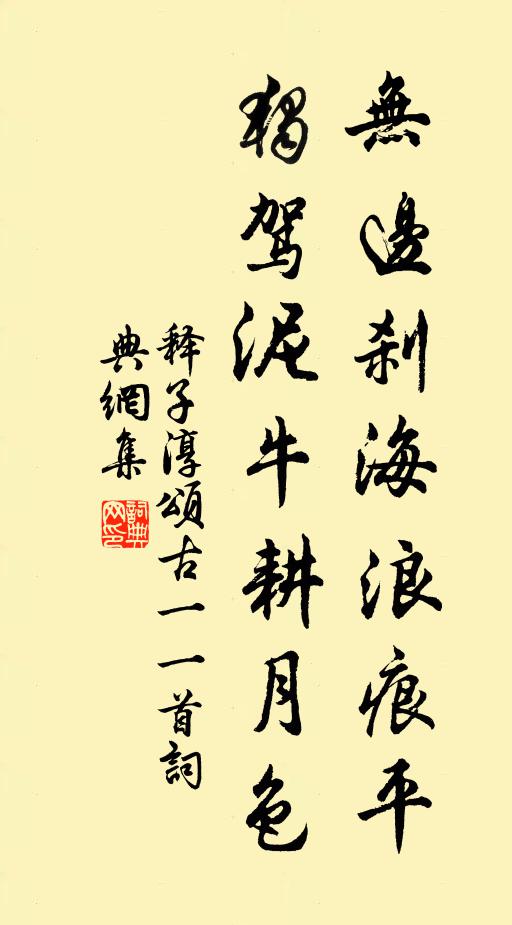 無邊刹海浪痕平
獨駕泥牛耕月色
释子淳頌古一一首詞
典網集
詞典网印